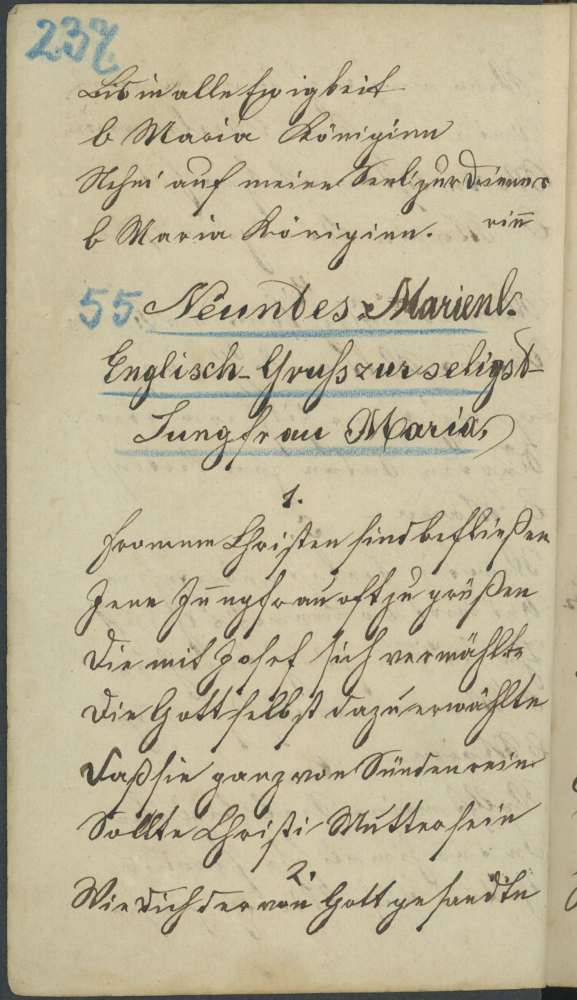 237
Bis in alle Ewigkeit
b Maria Königinn
Nehm' auf meine Seel' zur Dienne
rinn
b Maria Königinn.
55. Neuntes Marienl.
Englisch-Gruß zur seligst
Jungfrau Maria
1.
Fromme Christen sind befließen
Jene Jungfrau oft zu grüßen
Die mit Josef sich vermählte
Die Gott selbst dazu erwählte
Daß sie ganz von Sünden rein
Sollte Christi Mutter sein
2.
Wie dich der von Gott gesandte